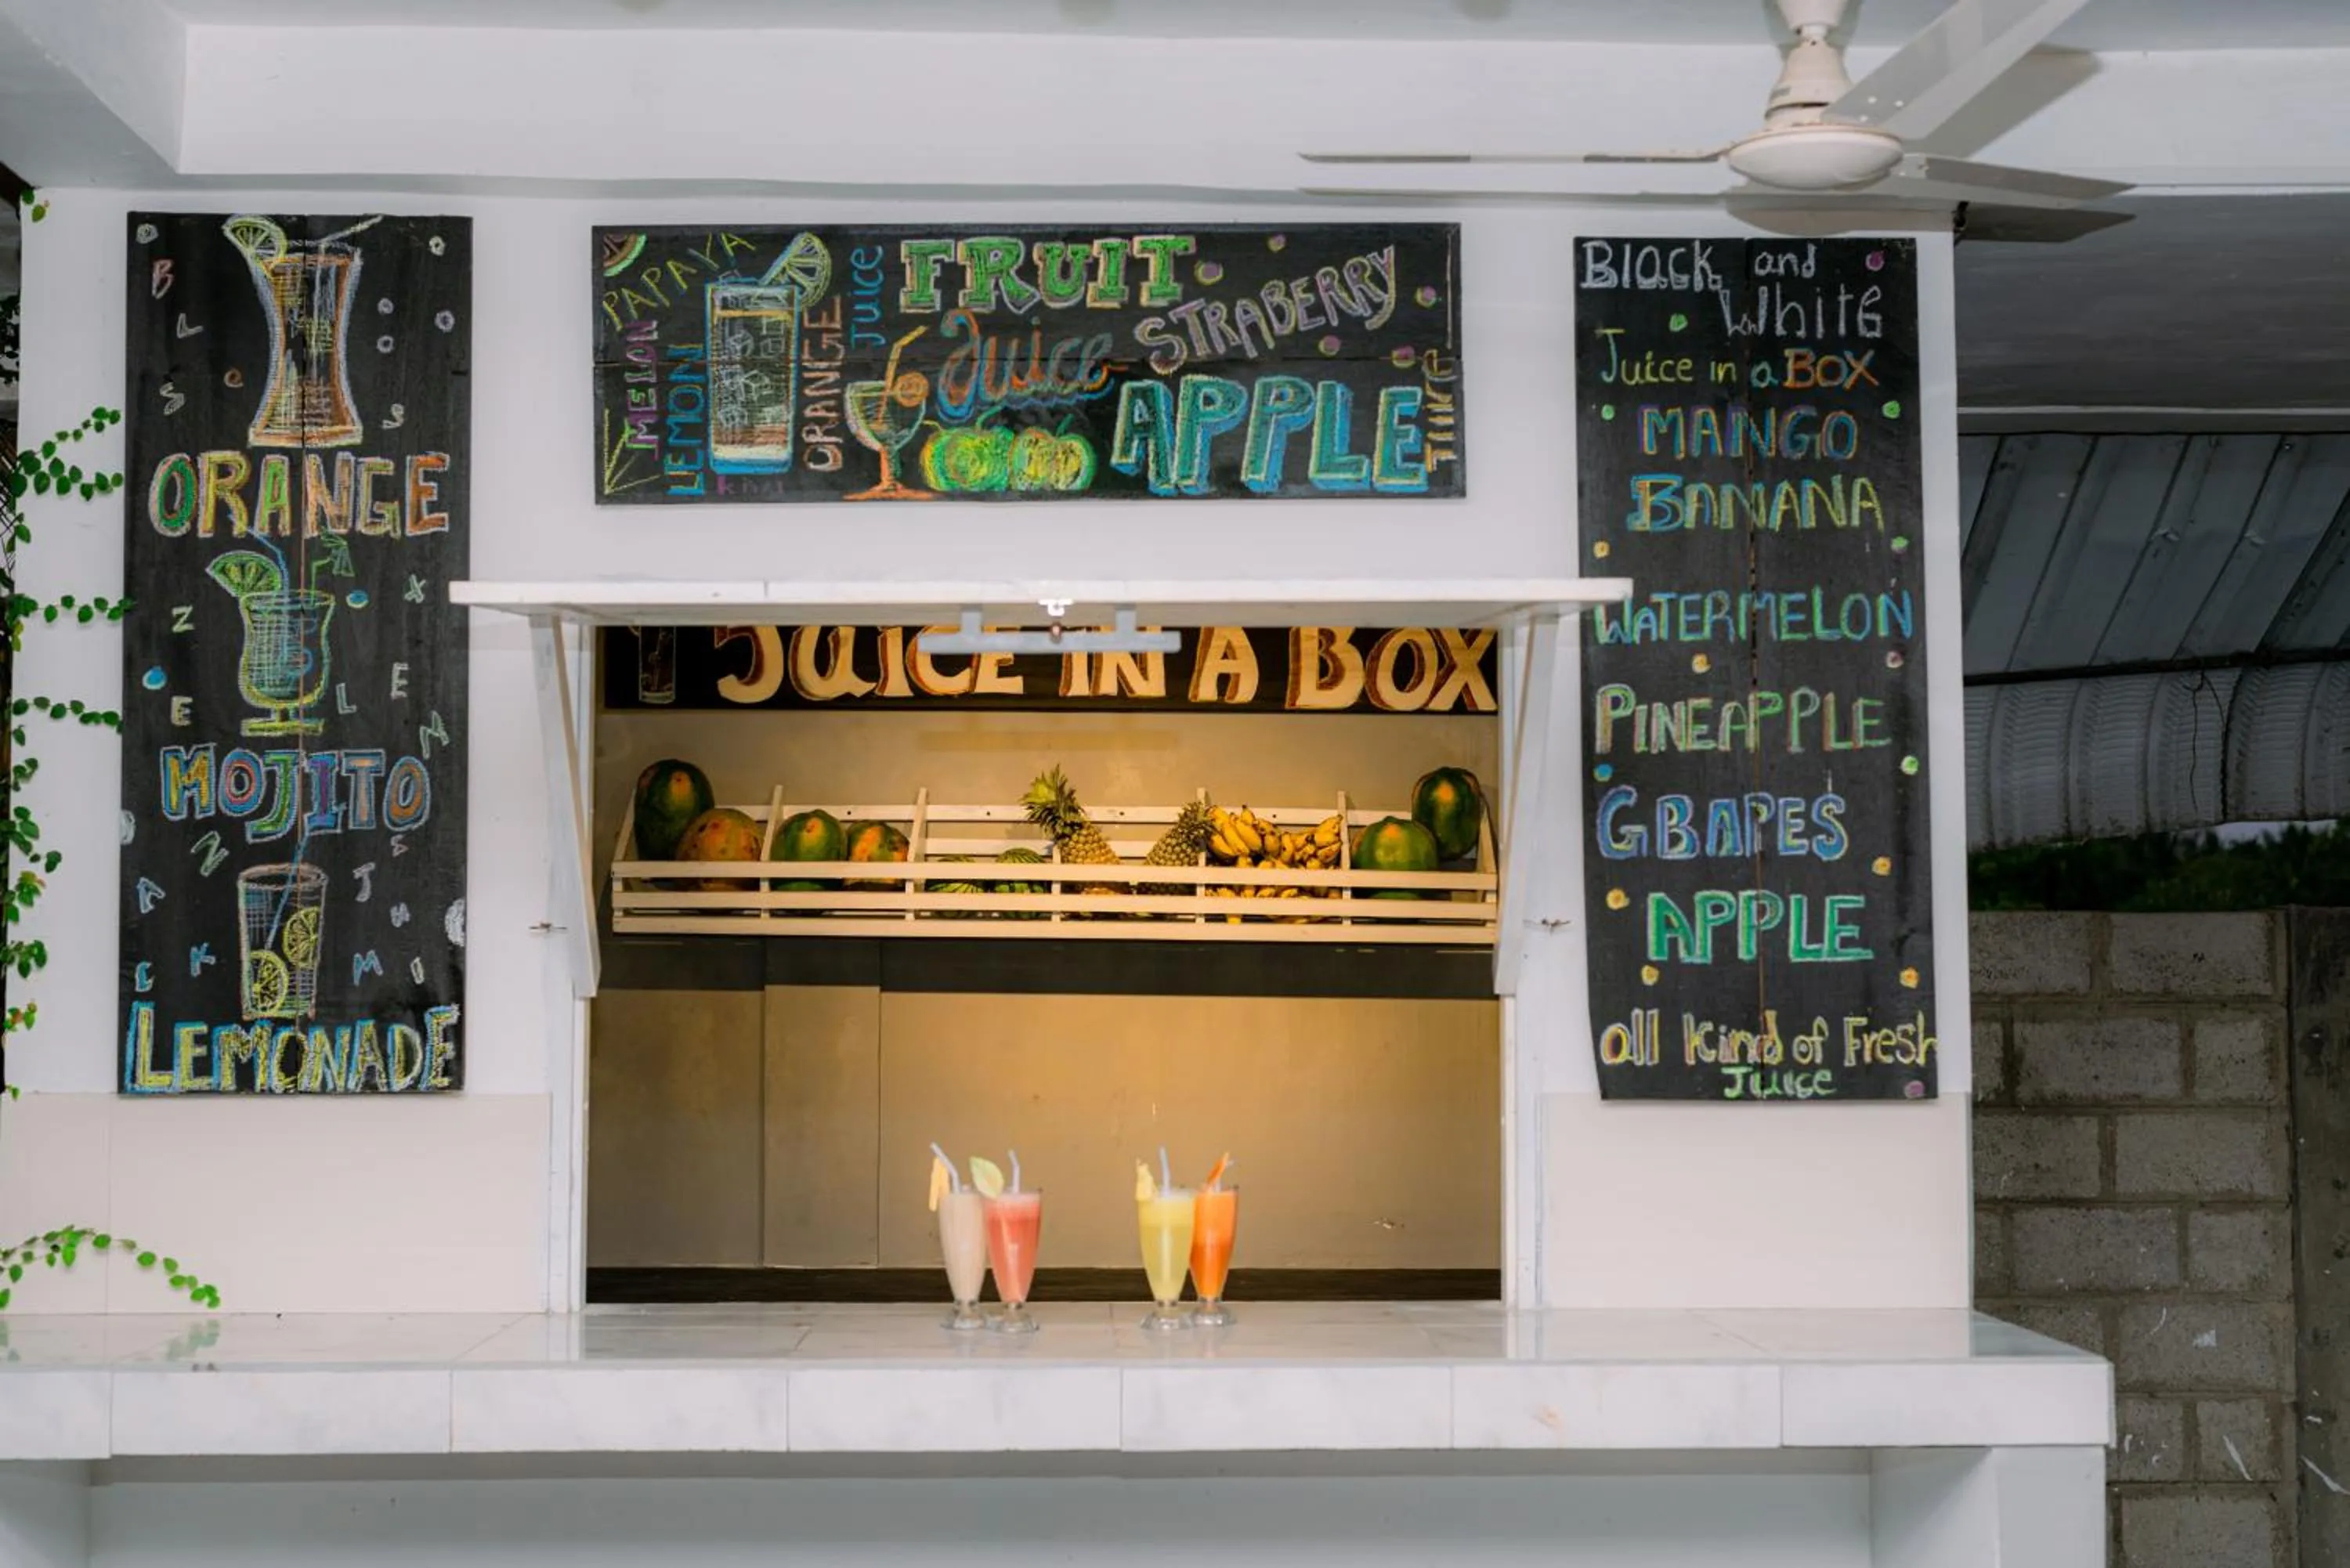 ORANGE
MOJITO
LEMONADE
PAPAYA
MELON
LEMON
ORANGE
JUICE
FRUIT
Juice
STRABERRY
APPLE
JUICE IN A BOX
Black and
White
Juice in a BOX
MANGO
BANANA
WATERMELON
PINEAPPLE
GBAPES
APPLE
all Kind of Fresh
Juice